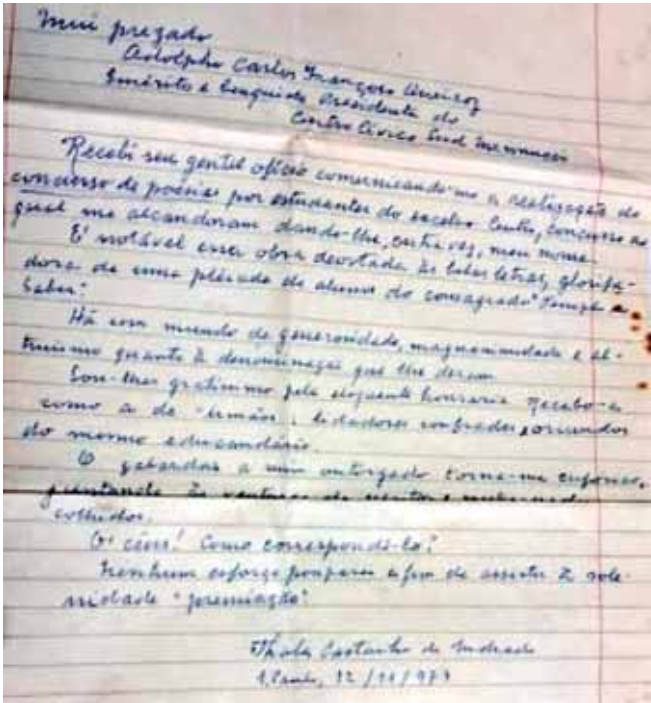 Meu prezado
Adolpho Carlos Françoso Queiroz
Emérito e benquisto Presidente do
Centro Cívico Sud Mennucci
Recebi seu gentil ofício comunicando-me a realização do
concurso de poesias por estudantes do excelso Centro, concurso ao
qual me alcandoram dando-lhe, outra vez, meu nome.
É notável essa obra devotada às belas letras, glorifica-
dora de uma plêiade de alunos do consagrado "Templo do
Saber".
Há um mundo de generosidade, magnanimidade e al-
truísmo quanto à denominação que lhe deram
Sou-lhes gratíssimo pela eloquente honraria. Recebo-a
como a de irmãos, lidadores confrades, oriundos
do mesmo educandário.
O galardão a mim outorgado torna-me eufórico,
colhidos.
Ó céus! Como correspondê-lo?
Nenhum esforço pouparei a fim de assistir à sole-
nidade "premiação".
Thales Castanho de Andrade
S. Paulo, 12/11/973